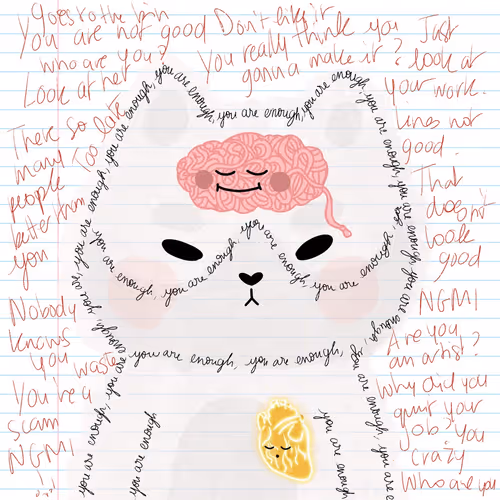 Goes to the bin
You are not good
who are you?
Look at her
Don't like it
You really think you
gonna make it?
Just
look at
your work.
Lines not
good.
That
does not
look
good
NGMI
Are you
an artist?
Why did you
quit your
job? You
crazy
Who are you
There so
many
people
better than
you
Too late
Nobody
knows
you
waste
You're a
scam
NGMI
!
you are enough, you are enough, you are enough, you are enough
you are enough,
you are enough, you are enough, you are enough, you are enough, you are enough
you are, enough, you are enough, you are enough
you are enough, you are enough, you are enough
you are enough, you are enough,
you are enough
you are enough
you are enough
you are enough